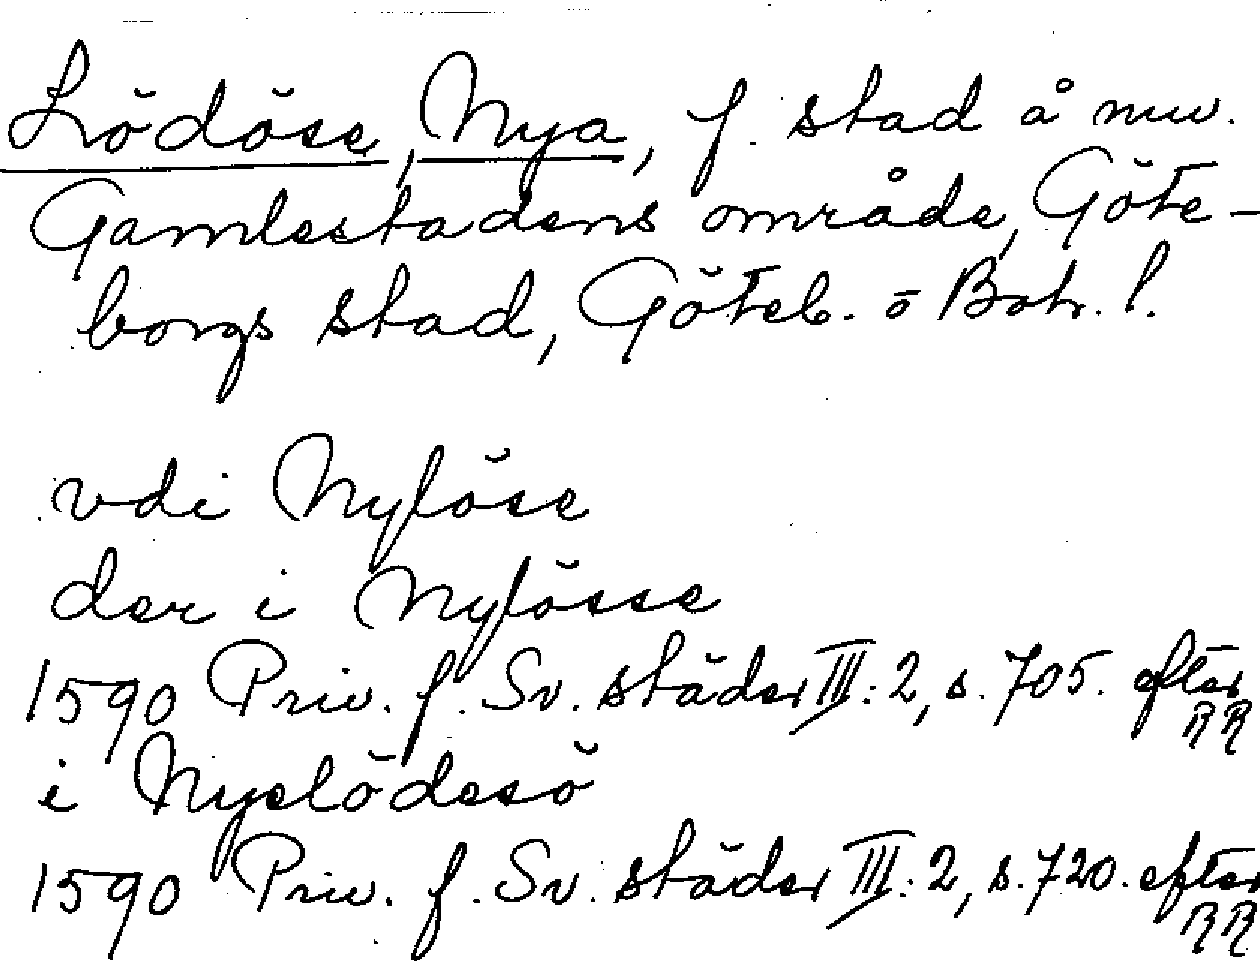 Lödöse, Nya, f. stad å nuv.
Gamlestadens område, Göte-
borgs stad, Göteb. o Boh. l.
vdi Nylöse
der i Nylösse
1590 Priv. f. Sv. städer III: 2, s. 705. efter RR
i Nyelödesö
1590 Priv. f. Sv. städer III: 2, s. 720. efter RR